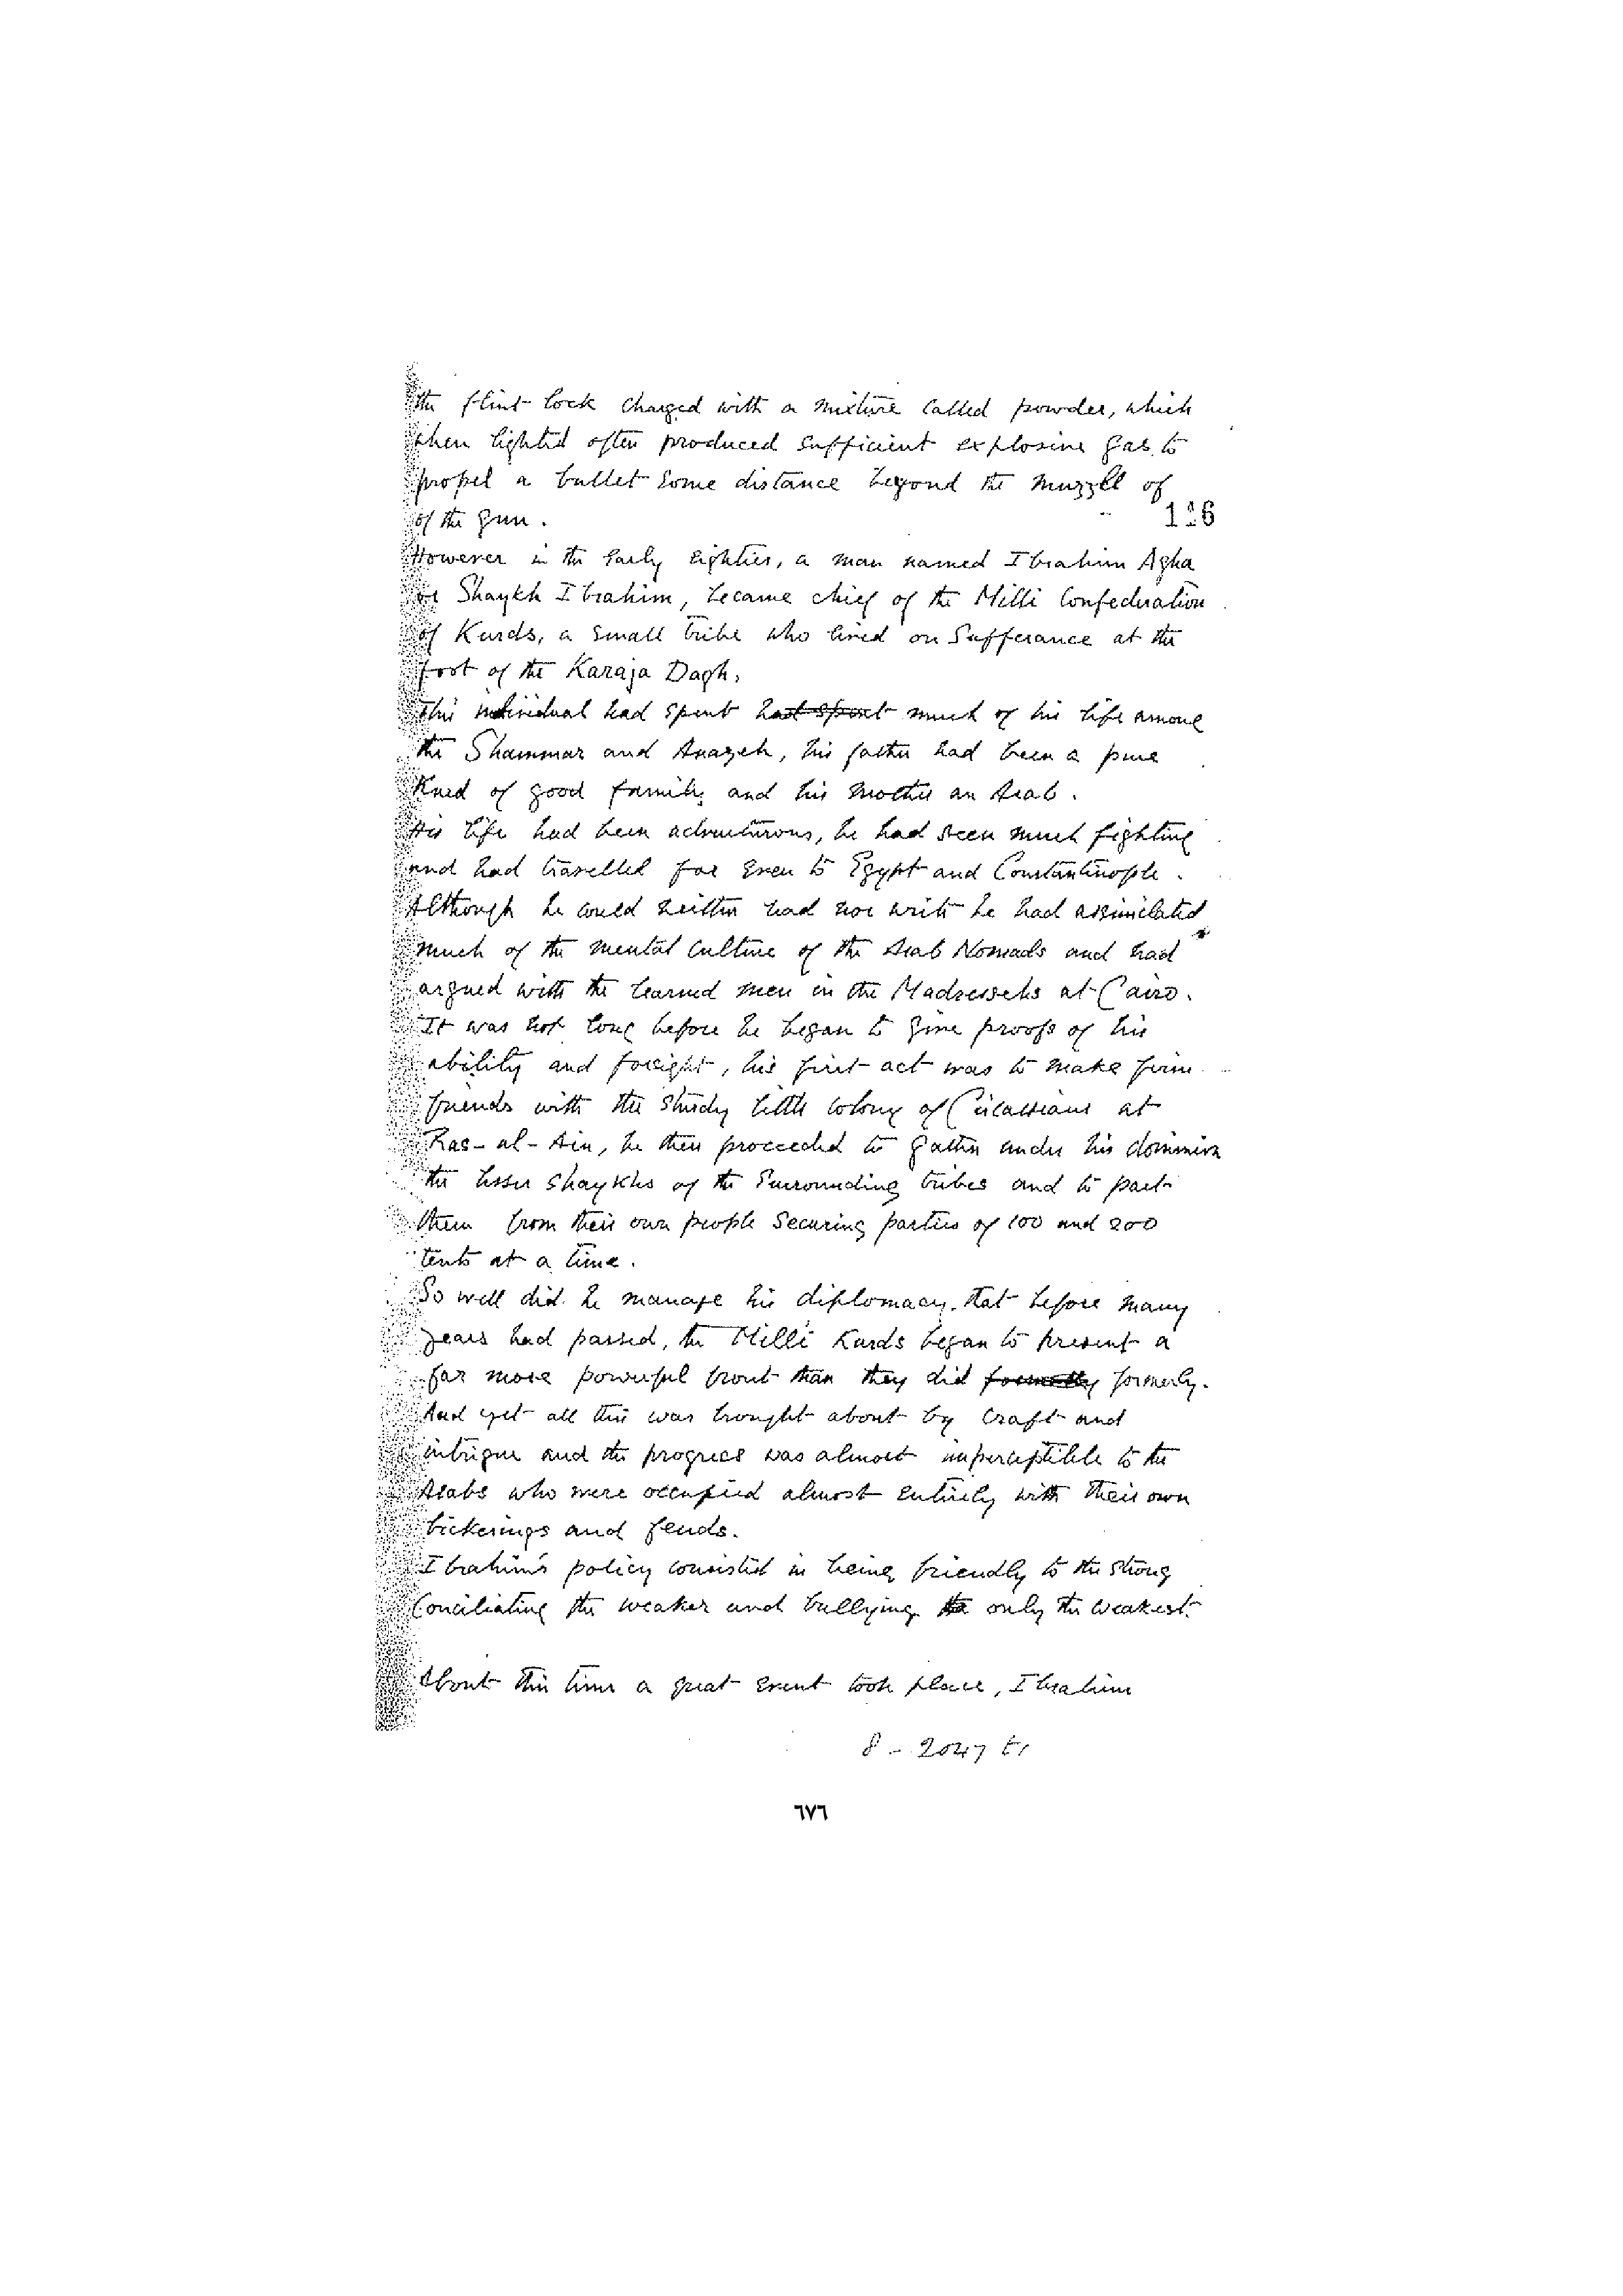 the flint lock charged with a mixture called powder, which
when lighted often produced sufficient explosive gas to
propel a bullet some distance beyond the muzzle of
of the gun.
126
However in the early eighties, a man named Ibrahim Agha
or Shaykh Ibrahim, became chief of the Milli Confederation
of Kurds, a small tribe who lived on sufferance at the
foot of the Karaja Dagh.
This individual had spent had spent much of his life among
the Shammar and Anazeh, his father had been a pure
Kurd of good family and his mother an Arab.
His life had been adventurous, he had seen much fighting
and had travelled far even to Egypt and Constantinople.
Although he could neither read nor write he had assimilated
much of the mental culture of the Arab Nomads and had
argued with the learned men in the Madressehs at Cairo.
It was not long before he began to give proofs of his
ability and foresight, his first act was to make firm
friends with the sturdy little colony of Circassians at
Ras-al-Ain, he then proceeded to gather under his dominion
the lesser Shaykhs of the surrounding tribes and to part
them from their own people securing parties of 100 and 200
tents at a time.
So well did he manage his diplomacy, that before many
years had passed, the Milli Kurds began to present a
far more powerful front than they did formerly formerly.
And yet all this was brought about by craft and
intrigue and the progress was almost imperceptible to the
Arabs who were occupied almost entirely with their own
bickerings and feuds.
Ibrahim's policy consisted in being friendly to the strong
Conciliating the weaker and bullying only the weakest.
About this time a great event took place, Ibrahim
8 - 2047
٦٧٦